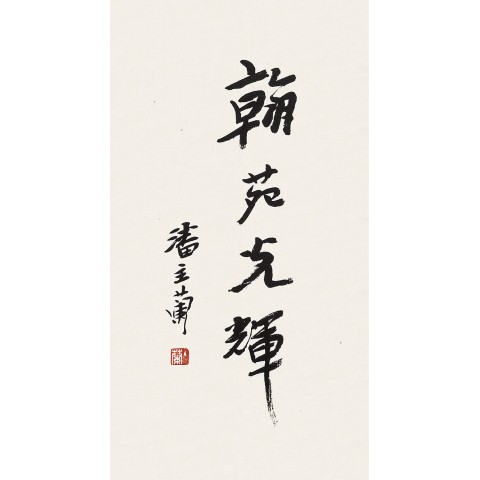 翰苑光輝
潘主蘭